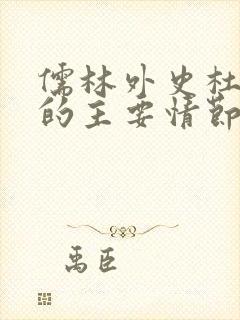 儒林外史杜
的主要情节
禹臣